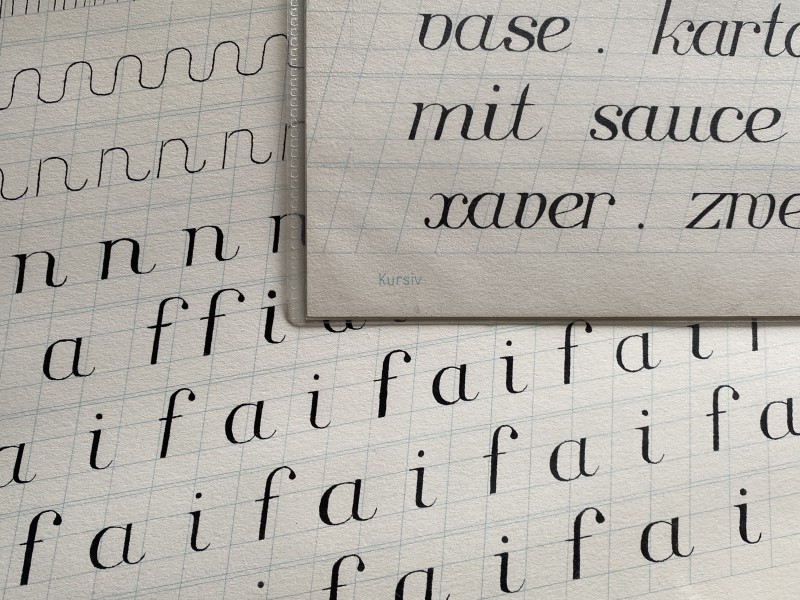 vase . karto
mit sauce
xaver . zwe
Kursiv
n n n n
n n n n
a f f i a
a i f a i f a i f a i
f a i f a i f a i f a
f a i f a i